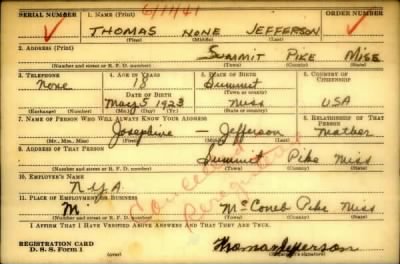 SERIAL NUMBER 1. NAME (Print) ORDER NUMBER
THOMAS NONE JEFFERSON
(First) (Middle) (Last)
2. ADDRESS (Print)
SUMMIT PIKE MISS
(Number and street or R. F. D. number) (Town) (County) (State)
3. TELEPHONE 4. AGE IN YEARS 5. PLACE OF BIRTH 6. COUNTRY OF CITIZENSHIP
None 18 Summit
DATE OF BIRTH (Town or county)
May 5 1923 Miss USA
(Exchange) (Number) (Mo.) (Day) (Yr.) (State or country)
7. NAME OF PERSON WHO WILL ALWAYS KNOW YOUR ADDRESS 8. RELATIONSHIP OF THAT PERSON
Josephine — Jefferson Mother
(Mr., Mrs., Miss) (First) (Middle) (Last)
9. ADDRESS OF THAT PERSON
Summit Pike Miss
(Number and street or R. F. D. number) (Town) (County) (State)
10. EMPLOYER'S NAME
N.Y.A.
11. PLACE OF EMPLOYMENT OR BUSINESS
McComb Pike Miss
(Number and street or R. F. D. number) (Town) (County) (State)
I AFFIRM THAT I HAVE VERIFIED ABOVE ANSWERS AND THAT THEY ARE TRUE.
REGISTRATION CARD
D. S. S. Form 1
Thomas Jefferson